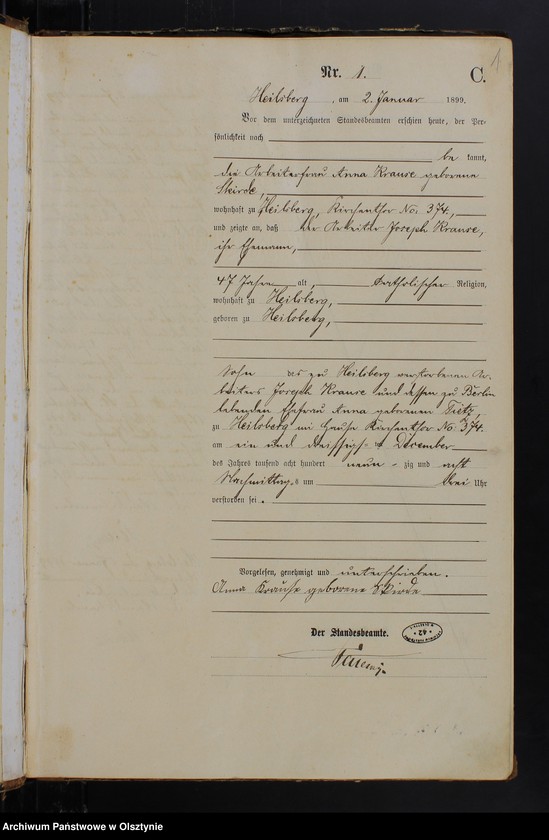 1
Nr. 1.
C.
Heilsberg, am 2. Januar 1899.
Vor dem unterzeichneten Standesbeamten erschien heute, der Per-
sönlichkeit nach
be kannt,
die Arbeiterfrau Anna Krause geborene
Skirde,
wohnhaft zu Heilsberg, Kirchenthor No. 374,
und zeigte an, daß der Arbeiter Joseph Krause,
ihr Ehemann,
47 Jahre alt, katholischer Religion,
wohnhaft zu Heilsberg,
geboren zu Heilsberg,
Sohn des zu Heilsberg verstorbenen Ar-
beiters Joseph Krause und dessen zu Berlin
lebenden Ehefrau Anna geborenen Tietz,
zu Heilsberg im Hause Kirchenthor No. 374.
am ein und dreissigsten December
des Jahres tausend acht hundert neun-zig und acht
Nachmittags um drei Uhr
verstorben sei.
Vorgelesen, genehmigt und unterschrieben.
Anna Krause geborene Skirde
Der Standesbeamte.
Archiwum Państwowe w Olsztynie